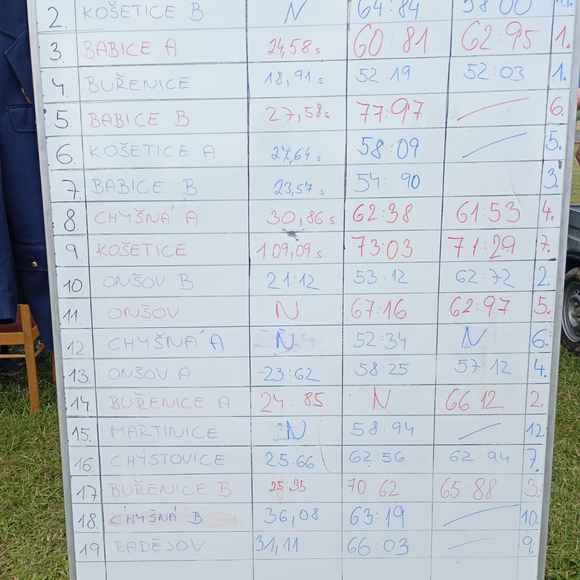 2. KOŠETICE B N 64:84 58:00
3 BABICE A 24,58s 60 81 62:95 1.
4. BUŘENICE 18,91s 52 19 52:03 1.
5 BABICE B 27,58s 77:97 — 6.
6. KOŠETICE A 27,64s 58:09 — 5.
7. BABICE B 23,57s 54:90 3.
8 CHYŠNÁ A 30,86s 62:38 61:53 4.
9 KOŠETICE 109,09s 73:03 71:29 7.
10 ONŠOV B 21:12 53:12 62:72 2.
11 ONŠOV N 67:16 62:97 5.
12 CHYŠNÁ A N 52:34 N 6.
13. ONŠOV A 23:62 58:25 57:12 4.
14. BUŘENICE A 24:85 N 66 12 2.
15. MARTINICE N 58:94 — 12
16. CHÝSTOVICE 25:66 62:56 62:94 7.
17. BUŘENICE B 25:35 70:62 65:88 3.
18. CHYŠNÁ B 36,08 63:19 — 10.
19 31,11 66:03 — 9.